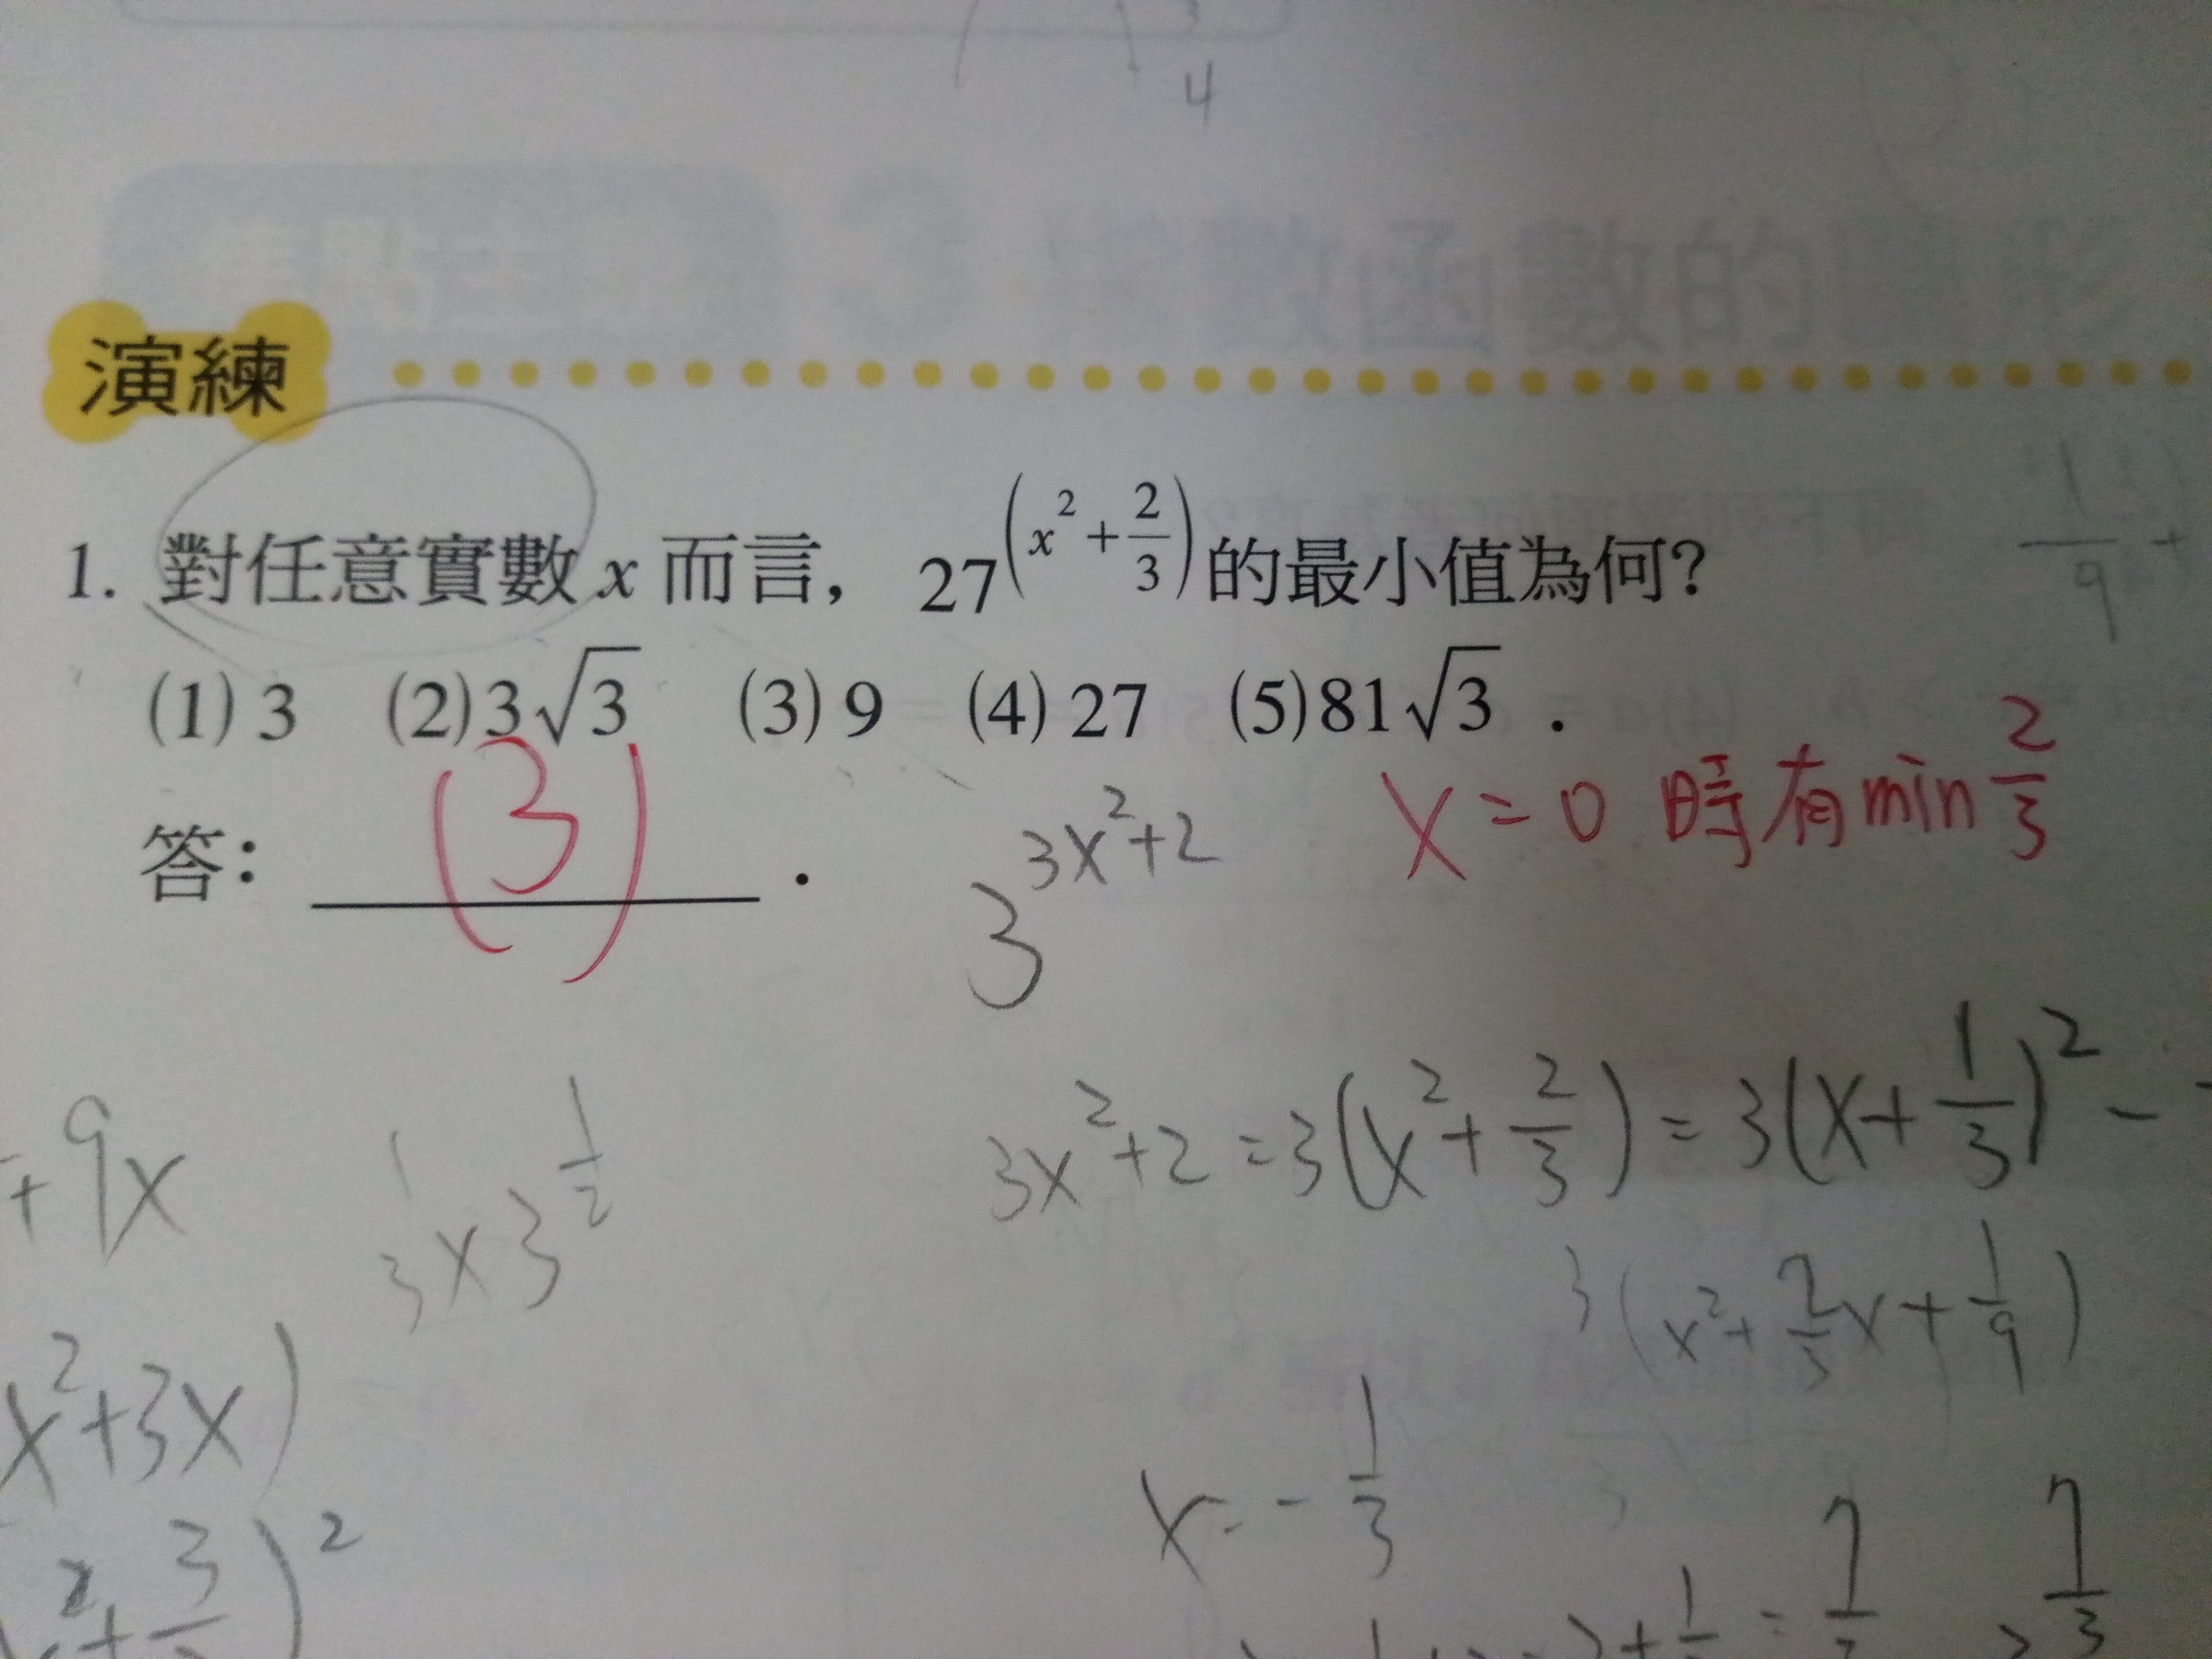 3
4
演練
1. 對任意實數 x 而言，27^(x^2+2/3) 的最小值為何？
(1) 3 (2) 3√3 (3) 9 (4) 27 (5) 81√3 .
答： (3) .
3^(3x^2+2)
x=0 時有 min 2/3
3x^2+2=3(x^2+2/3)=3(x+1/3)^2-
3(x^2+2/3x+1/9)
x=-1/3
+9x
3x3^(1/2)
x^2+3x)
7/3